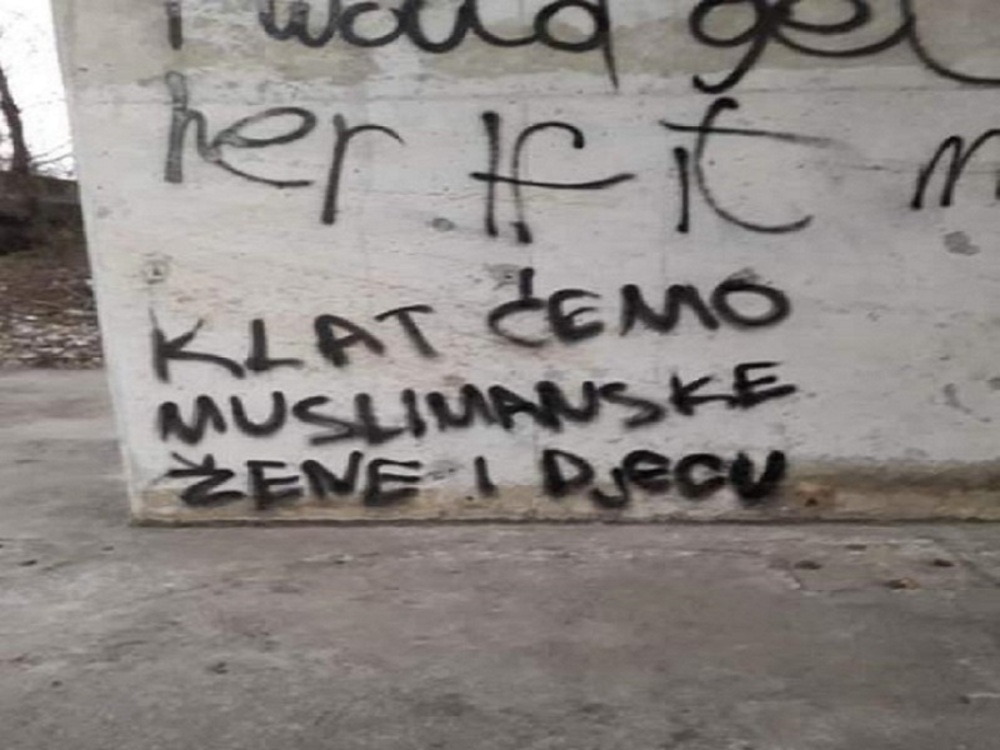 I would get
her If it m
KLAT ĆEMO
MUSLIMANSKE
ŽENE I DjECU